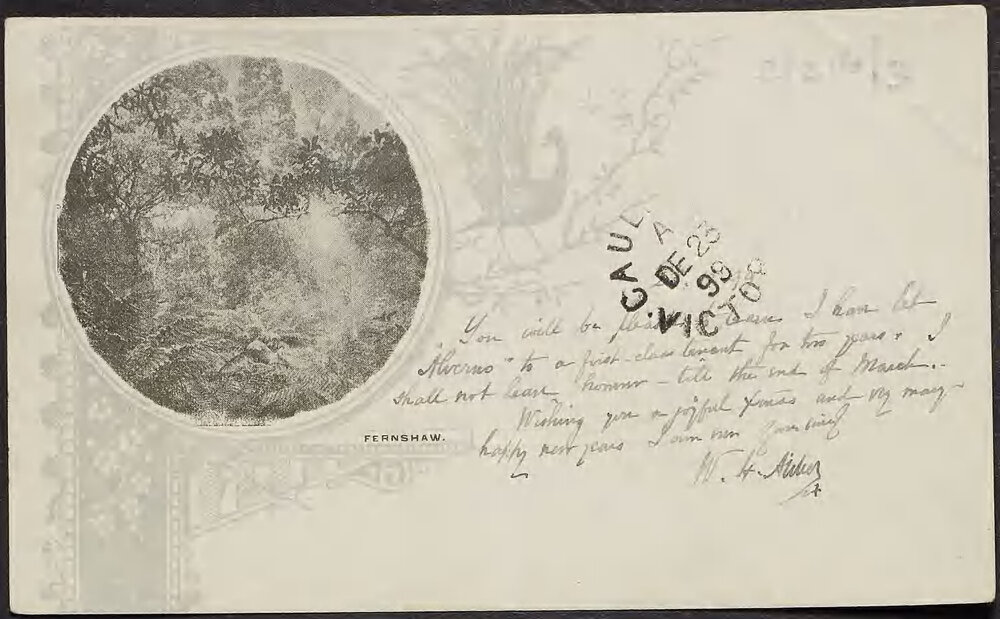 FERNSHAW.
CAUL
A
DE 23
99
VICTOR
You will be pleased to learn I have let
"Alverno" to a first-class tenant for two years. I
shall not leave however - till the end of March.
Wishing you a joyful Xmas and very many
happy new years I am ever yours
W. H.